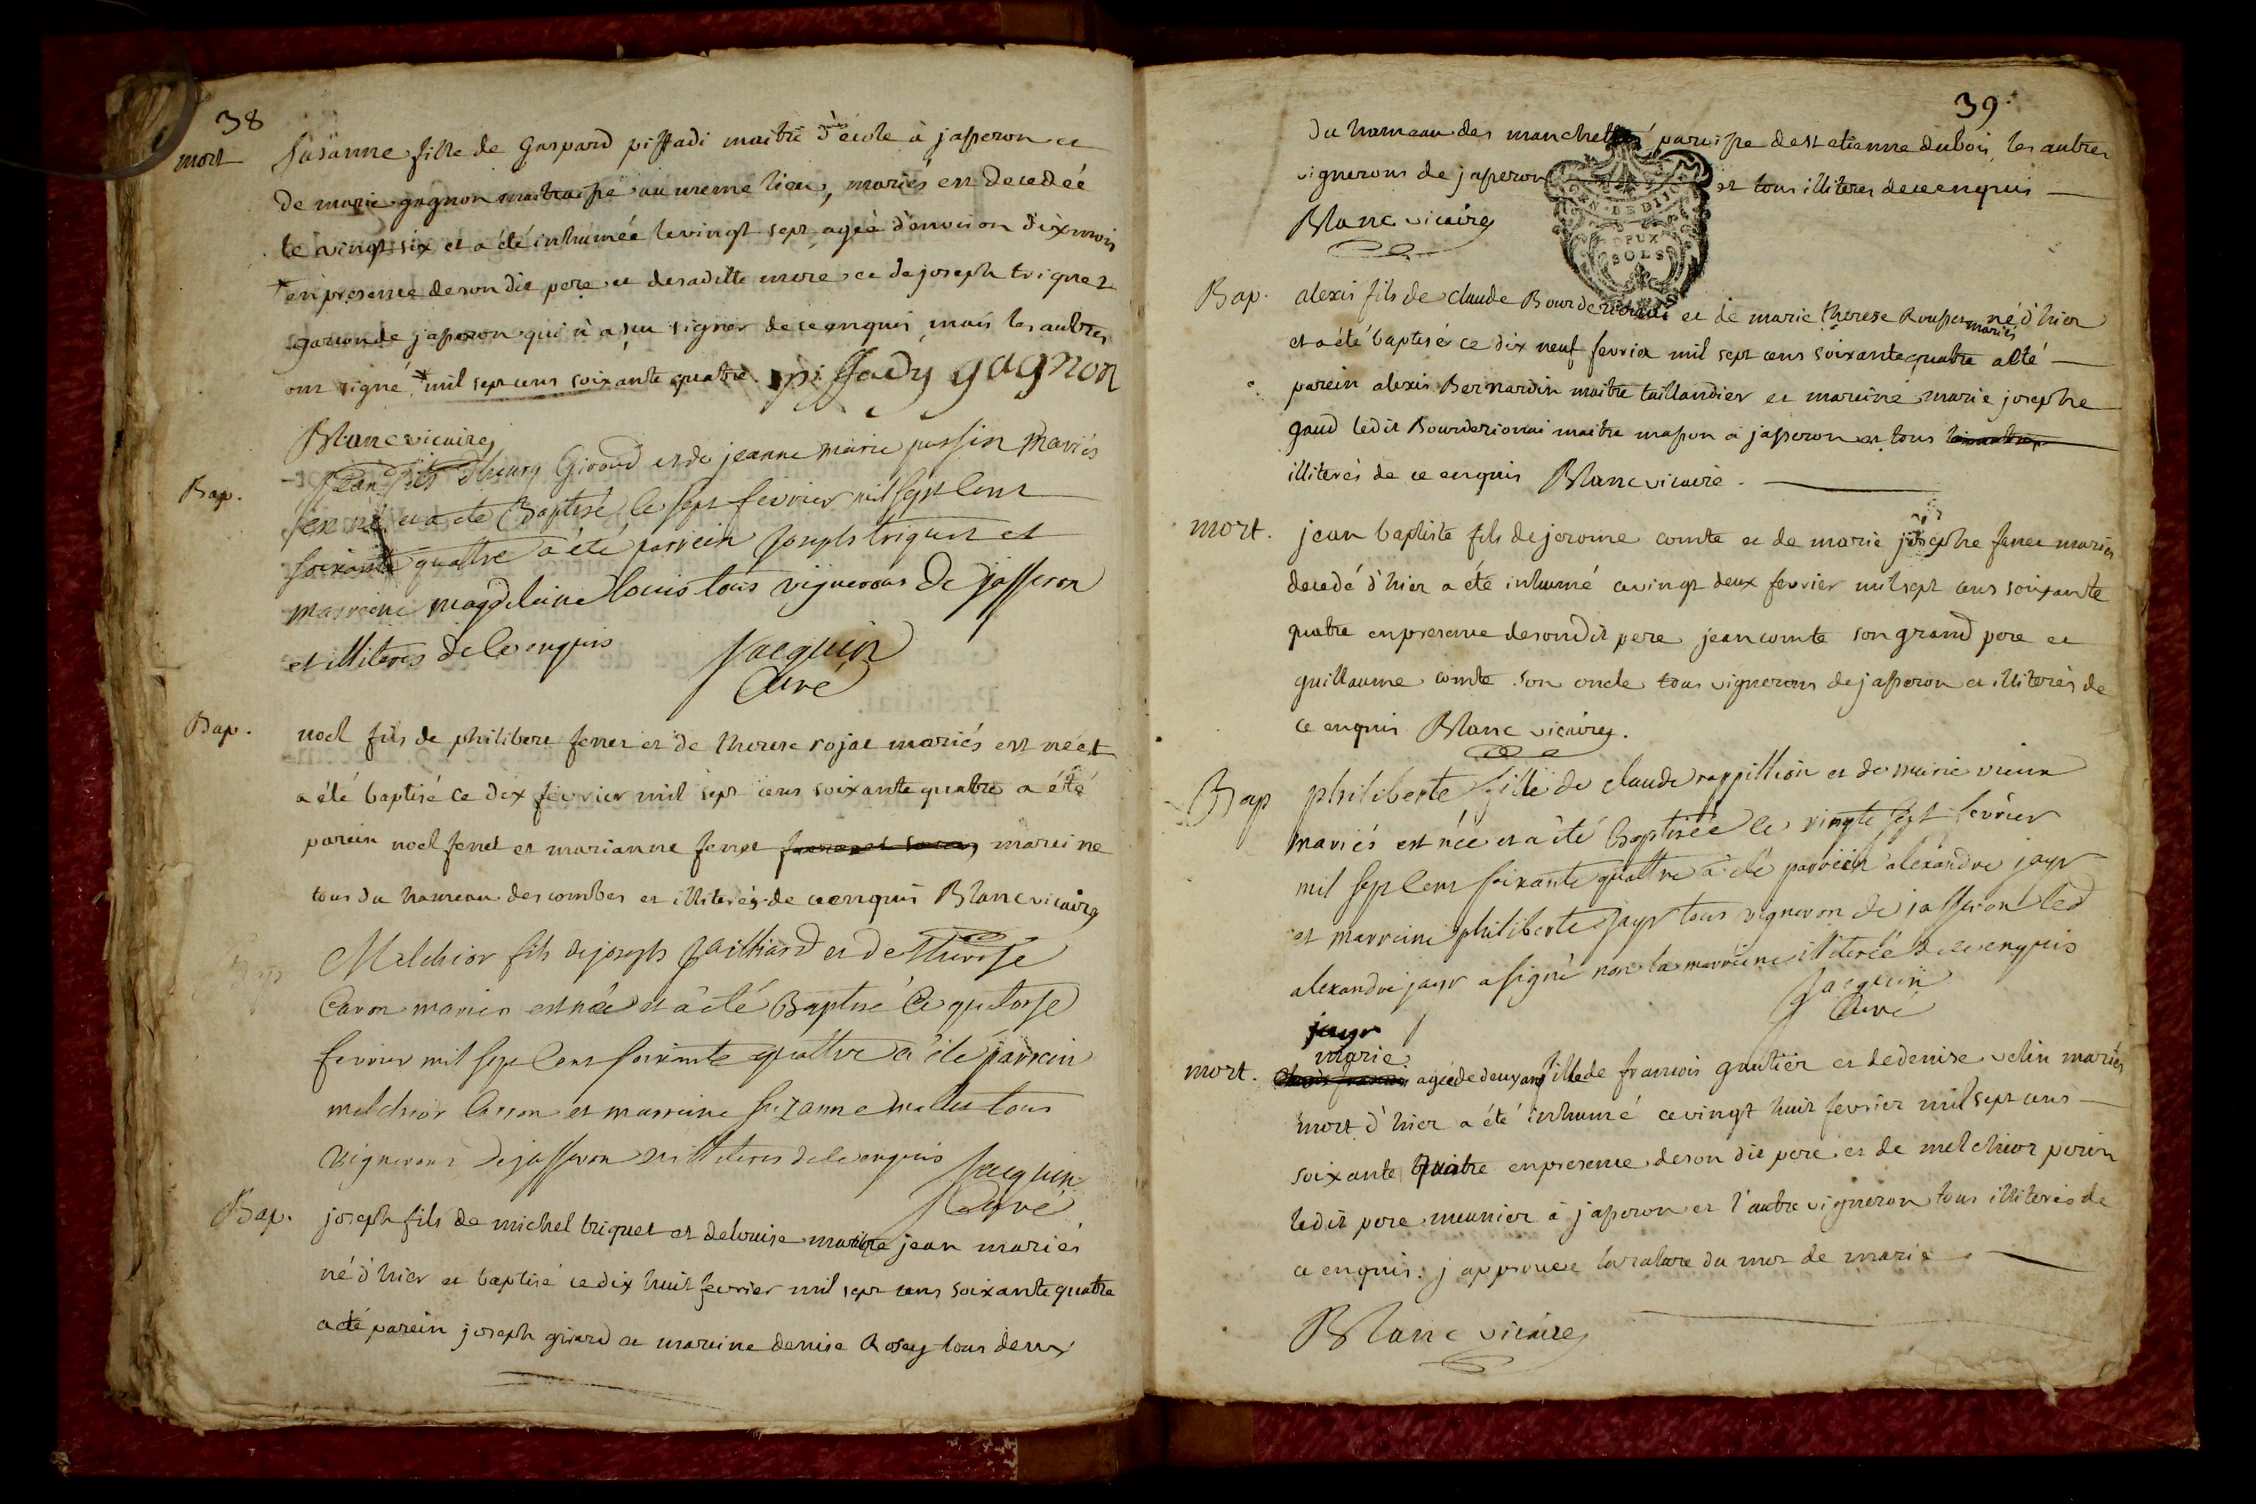 38
mort
susanne fille de Gaspard piffadi maitre d'école à jasseron et
de marie gagnon maitraisse au meme lieu, mariés est decedéé
le vingt six et a été inhuméé le vingt sept agéé d'environ dix mois
* en presence de son dit pere et de sa ditte mere et de joseph triquet
garcon de jasseron qui n'a scu signer de ce enquis, mais les autres
ont signé. * mil sept cens soixante quatre. piffady gagnon
Blanc vicaire
Bap.
jean fils d'heury Giroud et de jeanne marie passin mariés
est né et a ete Baptisé le sept fevrier mil sept cent
soixante quattre a été parrein joseph triquet et
marreine magdeleine louis tous vignerons de jasseron
et illiteres de ce enquis Jacquin
Curé
Bap.
noel fils de philibert feret et de therese rojat mariés est né et
a été baptisé ce dix fevrier mil sept cens soixante quatre a été
parein noel feret et marianne feret mareine
tous du hameau des combes et illiterés de ce enquis Blanc vicaire
Bap
Melchior fils de joseph et de therese
Caron mariés est née et a été Baptisé le quatorse
fevrier mil sept cent soixante quattre a été parrein
melchior Carron et marreine suzanne tous
vignerons de jasseron illiteres de ce enquis Jacquin
Curé
Bap.
joseph fils de michel triquet et de louise jean mariés
né d'hier et baptisé ce dix huit fevrier mil sept cens soixante quatre
a été parein joseph girard et mareine denise Rosay tous deux
39.
du hameau des manchettes paroisse de st etienne dubois, les autres
vignerons de jasseron et tous illiteres de ce enquis
Blanc vicaire
DEUX
SOLS
Bap.
alexis fils de claude Bourderionnai et de marie therese Rousset mariés né d'hier
et a été baptisé ce dix neuf fevrier mil sept cens soixante quatre a été
parein alexis Bernardin maitre taillandier et mareine marie josephe
gaud ledit Bourderionnai maitre masson a jasseron et tous
illiterés de ce enquis Blanc vicaire.
mort.
jean baptiste fils de jerome comte et de marie josephe feret mariés
decedé d'hier a été inhumé ce vingt deux fevrier mil sept cens soixante
quatre en presence de son dit pere jean comte son grand pere et
guillaume comte son oncle tous vignerons de jasseron et illiterés de
ce enquis Blanc vicaire.
Bap
philiberte fille de claude rappillion et de marie vieux
mariés est née et a été Baptisée le vingte sept fevrier
mil sept cent soixante quattre a été parrein alexandre jayr
et marreine philiberte jayr tous vigneron de jasseron led
alexandre jayr a signé non la marreine illiterée de ce enquis
Jacquin
Curé
jayr
mort.
marie
agéé de deux ans fille de francois gautier et de denise velin mariés
mort d'hier a été inhumé ce vingt huit fevrier mil sept cens
soixante quatre en presence de son dit pere et de melchior perin
ledit pere meunier à jasseron et l'autre vigneron tous illiterés de
ce enquis. j'approuve la rature du mot de marie
Blanc vicaire